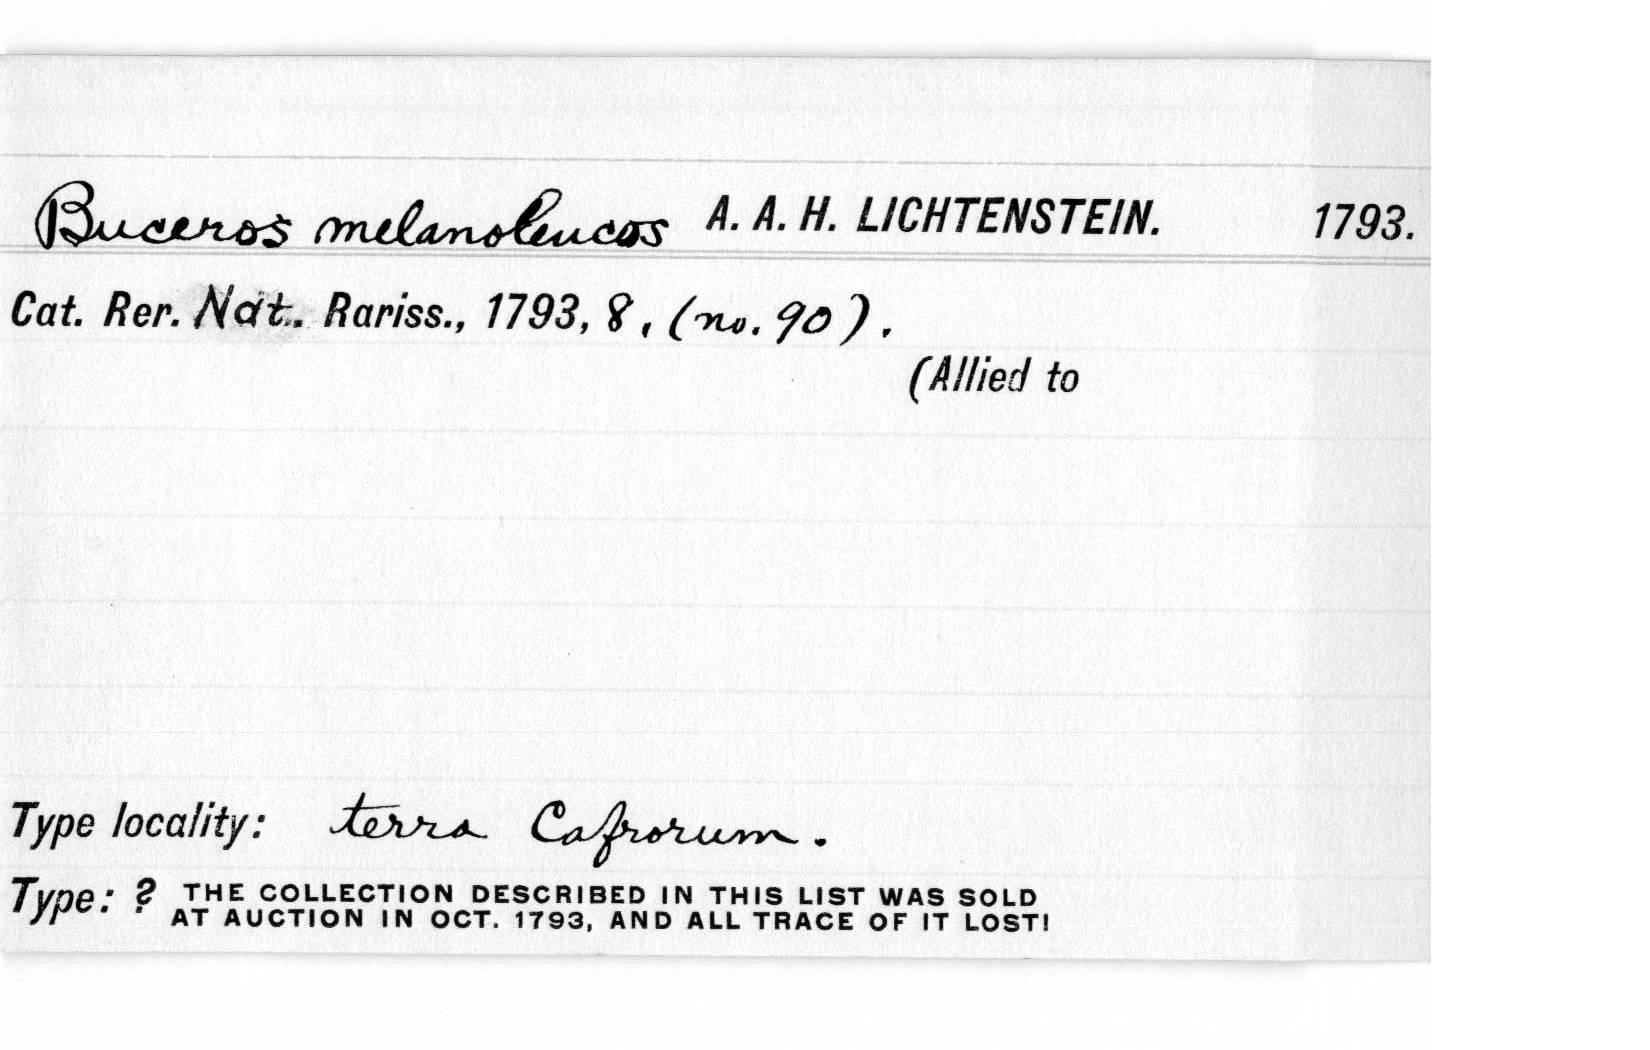 Buceros melanoleucos A. A. H. LICHTENSTEIN. 1793.
Cat. Rer. Nat. Rariss., 1793, 8, (no. 90).
(Allied to
Type locality: terra Cafrorum.
Type: ? THE COLLECTION DESCRIBED IN THIS LIST WAS SOLD
AT AUCTION IN OCT. 1793, AND ALL TRACE OF IT LOST!